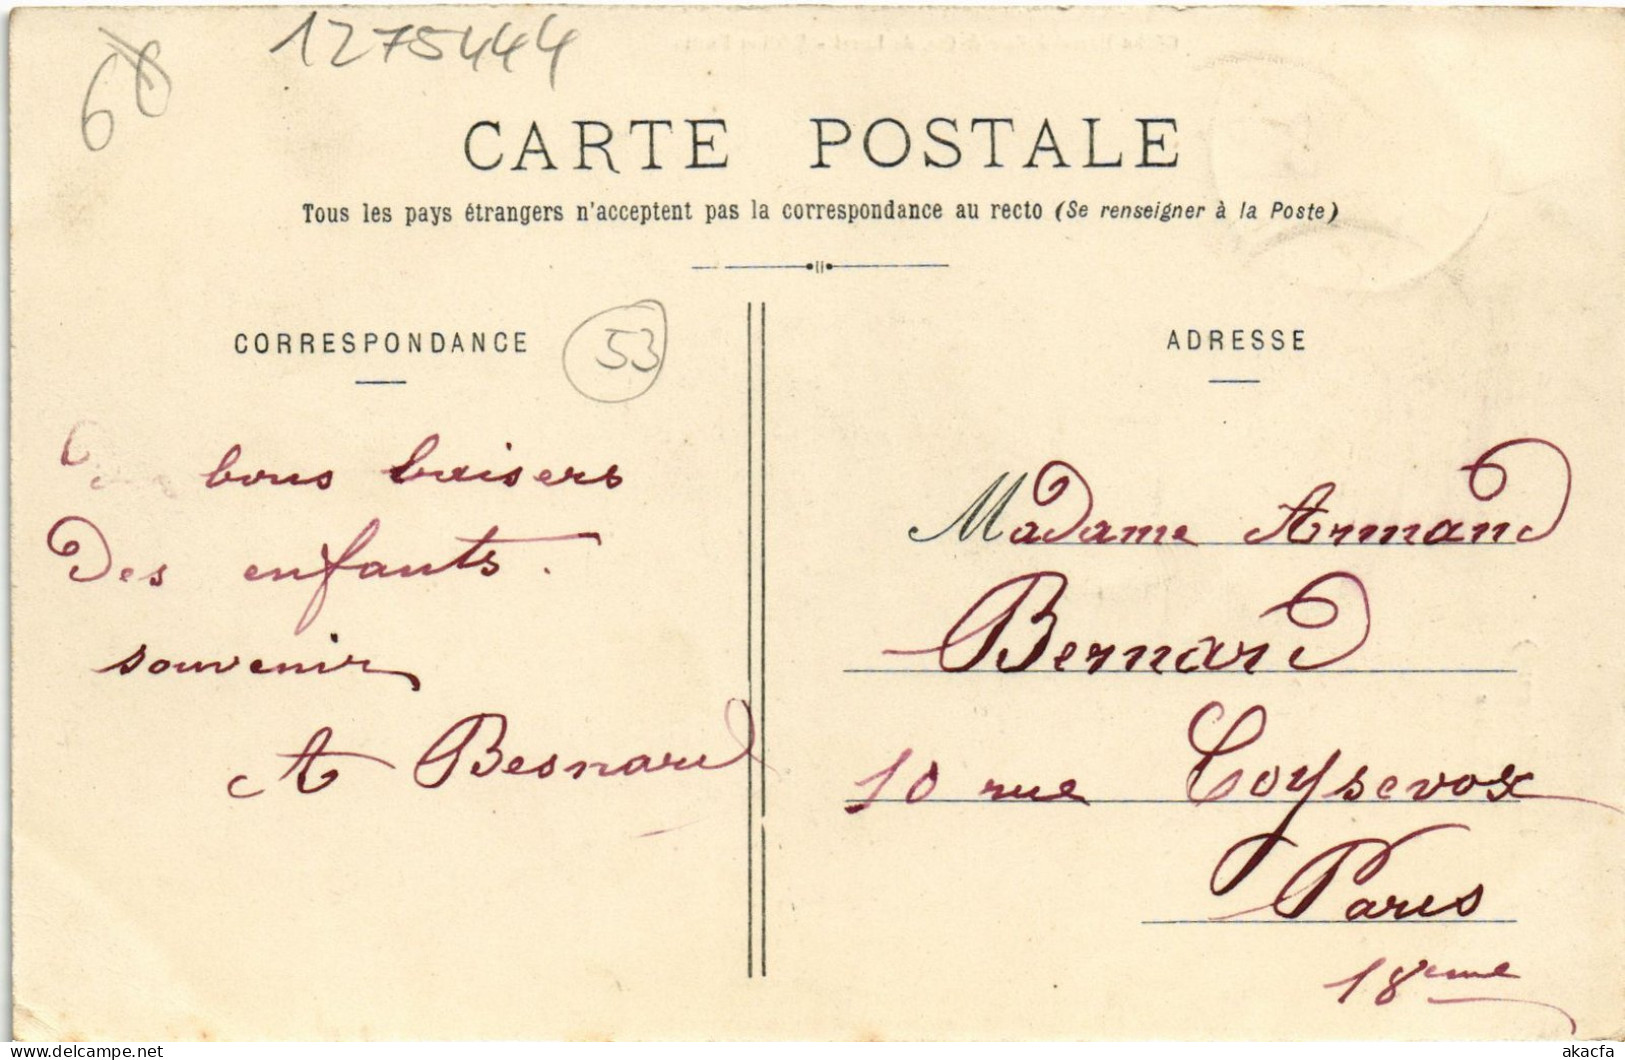 68
1275444
CARTE POSTALE
Tous les pays étrangers n'acceptent pas la correspondance au recto (Se renseigner à la Poste)
CORRESPONDANCE
53
ADRESSE
bons baisers
Des enfants.
souvenir
A Besnard
Madame Armand
Bernard
10 rue Coysevox
Paris
18eme
akacfa